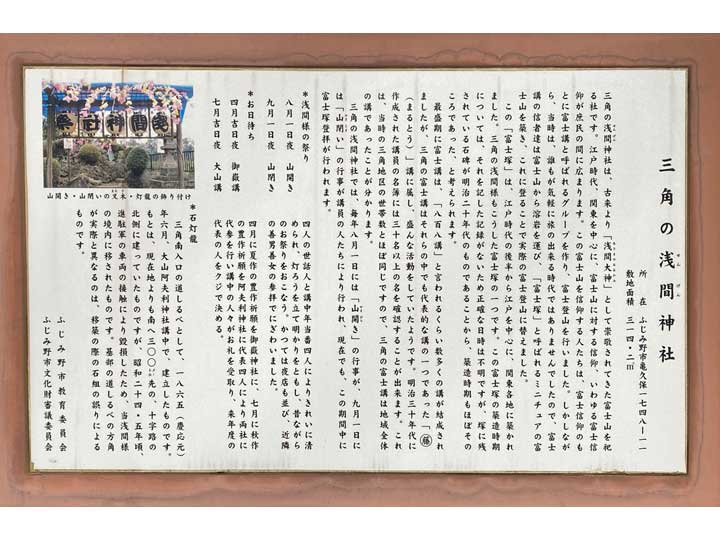 三角の浅間神社
せんげん
所　在　ふじみ野市亀久保一七四八ー一一
敷地面積　三一四・二㎡
三角の浅間神社は、古来より「浅間大神」として崇敬されてきた富士山を祀
る社です。江戸時代、関東を中心に、富士山に対する信仰、いわゆる富士信
仰が庶民の間に広まります。この富士山を信仰する人たちは、富士信仰のも
とに富士講と呼ばれるグループを作り、富士登山を行いました。しかしなが
ら、当時は、誰もが気軽に旅の出来る時代ではありませんでしたので、富士
講の信者達は富士山から溶岩を運び、「富士塚」と呼ばれるミニチュアの富
士山を築き、これに登ることで実際の富士登山に替えました。
この「富士塚」は、江戸時代の後半から江戸を中心に、関東各地に築かれ
ました。三角の浅間様もこうした富士塚の一つです。この富士塚の築造時期
については、それを記した記録がないため正確な日時は不明ですが、塚に残
されている石碑が明治二十年代のものであることから、築造時期もほぼその
ころであった、と考えられます。
最盛期に富士講は、「八百八講」と言われるくらい数多くの講が結成され
ましたが、三角の富士講はそれらの中でも代表的な講の一つであった「㊙
（まるとう）」講に属し、盛んな活動をしていたようです。明治三十年代に
作成された講員の名簿には三十名以上の名を確認することが出来ます。これ
は、当時の三角地区の世帯数とほぼ同じですので、三角の富士講は地域全体
の講であったことが分かります。
三角の浅間神社では、毎年八月一日には「山開き」の行事が、九月一日に
は「山閉い」の行事が講員の人たちにより行われ、現在でも、この期間中に
富士塚登拝が行われます。
＊浅間様の祭り
八月一日夜　山開き
九月一日夜　山閉き
四人の世話人と講中年当番四人によりきれいに清
められ、灯ろうを立て明かりをともし、昔ながら
のお祭りをおこなう。かつては夜店も並び、近隣
の善男善女の参拝でにぎわいました。
＊お日待ち
四月吉日夜　御嶽講
七月吉日夜　大山講
四月に夏作の豊作祈願を御嶽神社に、七月に秋作
の豊作祈願を阿夫利神社に代表四人により両社に
代参を行い講中の人々がお礼を受取り、来年度の
代表の人をクジで決める。
＊石灯籠
三角南入口の道しるべとして、一八六五（慶応元）
年六月、大山阿夫利神社講中で、建立したものです。
もとは、現在地よりも南へ三〇〇㍍先の、十字路の
北側に建っていたものですが、昭和二十四・五年頃、
進駐軍の車両の接触により毀損したため、当浅間様
の境内に移されたものです。基部の道しるべの方角
が実際と異なるのは、移築の際の石組の誤りによる
ものです。
ふじみ野市教育委員会
ふじみ野市文化財審議委員会
山開き・山閉いの叉木・灯籠の飾り付け